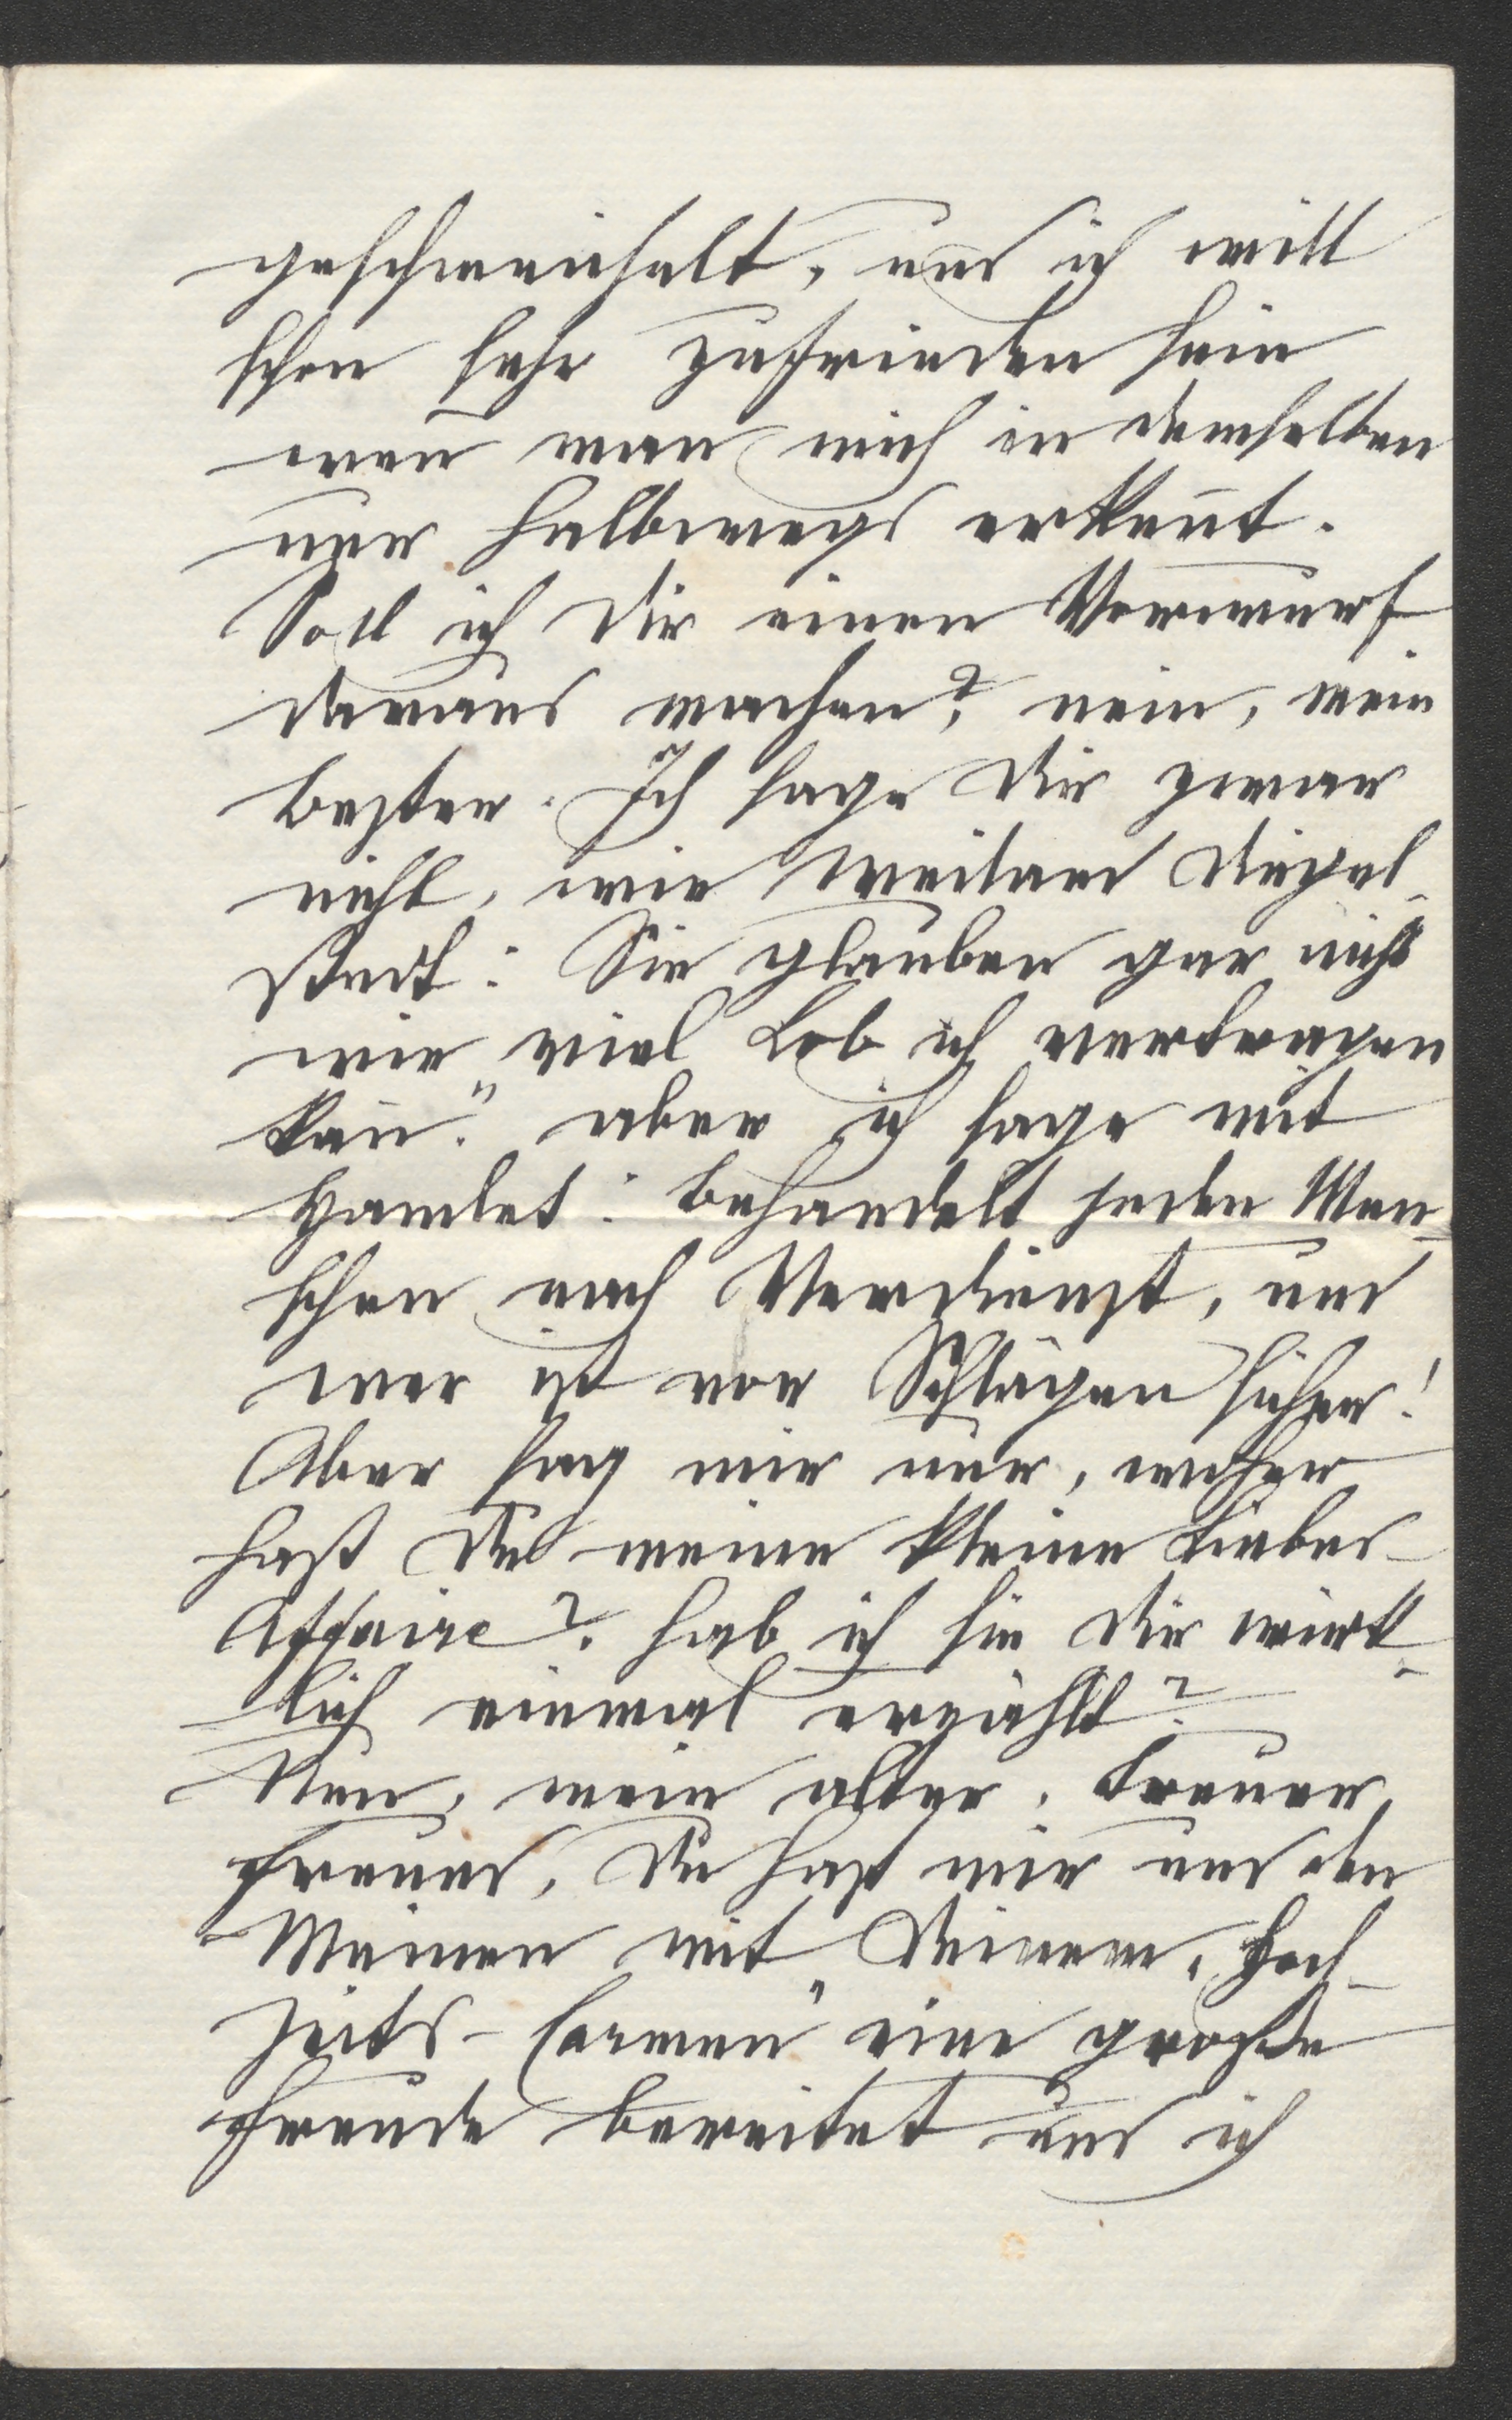 geschmeichelt, und ich will
schon sehr zufrieden sein
weñ man mich in demselben
nur halbwegs erkeñt.
Soll ich Dir einen Vorwurf
daraus machen? nein, mein
Bester. Ich sage Dir zwar
nicht, wie weiland Dingel-
stedt: Sie glauben gar nicht
wie viel Lob ich vertragen
kañ." aber ich sage mit
Hamlet: Behandelt jeden Men-
schen nach Verdienst, und
wer ist vor Schlägen sicher!
Aber sag mir nur, woher
hast Du meine kleine Liebes-
Affaire? hab ich sie Dir wirk-
lich einmal erzählt?
Nun, mein alter, treuer
Freund, Du hast mir und den
Meinen mit Deinem „Hoch-
zeits-Carmen" eine große
Freude bereitet und ich